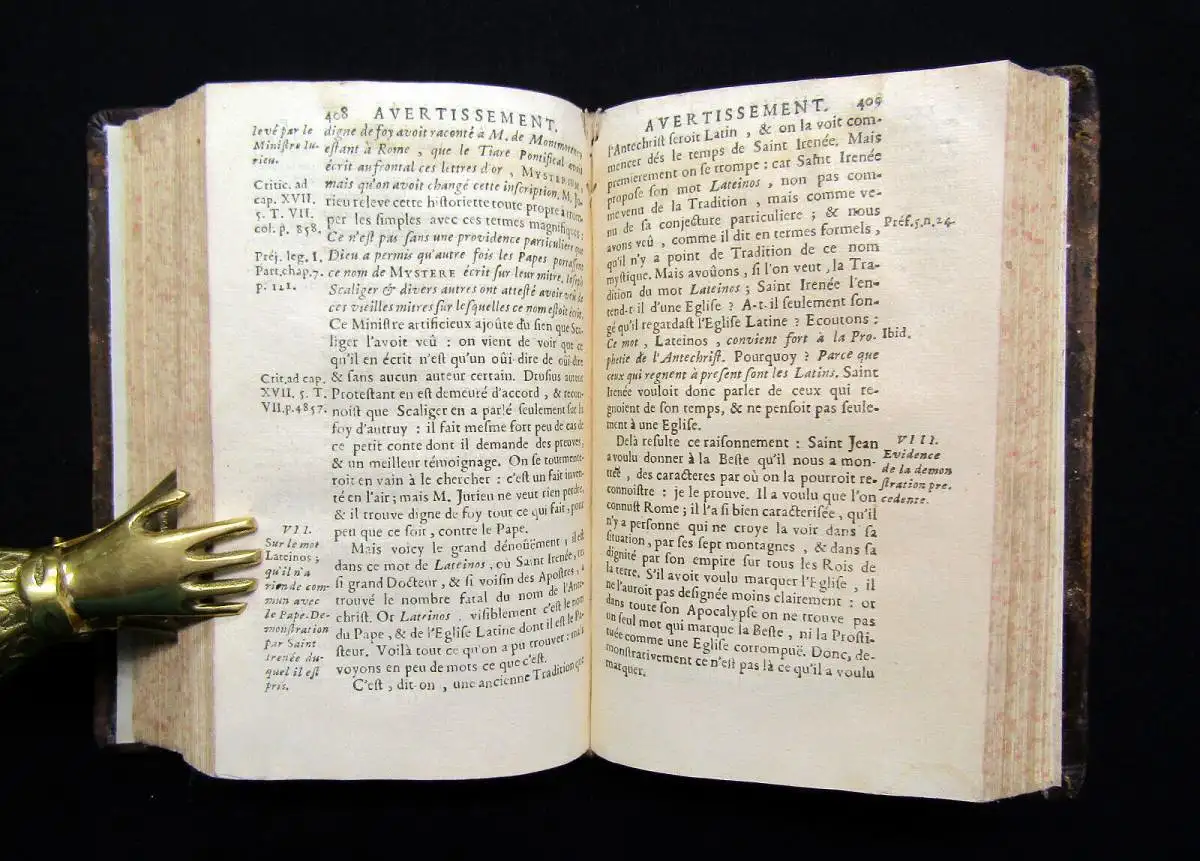 408 AVERTISSEMENT.
levé par le
Ministre Ju-
rieu.
Critic. ad
cap. XVII.
5. T. VII.
col. p. 858.
Préj. leg. I.
Part. chap. 7.
p. 121.
Crit. ad cap.
XVII. 5. T.
VII. p. 4857.
VII.
Sur le mot
Lateinos ;
qu'il n'a
rien de com-
mun avec
le Pape. De-
monstration
par Saint
Irenée du-
quel il est
pris.
digne de foy avoit raconté à M. de
estant à Rome , que le Tiare Pontifical avoit
écrit au frontal ces lettres d'or , MYSTERIUM,
mais qu'on avoit changé cette inscription. M. Ju-
rieu releve cette historiette toute propre à trom-
per les simples avec ces termes magnifiques :
Ce n'est pas sans une providence particuliere que
Dieu a permis qu'autre fois les Papes portassent
ce nom de MYSTERE écrit sur leur mitre. Joseph
Scaliger & divers autres ont attesté avoir veû de
ces vieilles mitres sur lesquelles ce nom estoit écrit.
Ce Ministre artificieux ajoûte du sien que Sca-
liger l'avoit veû : on vient de voir que ce
qu'il en écrit n'est qu'un oûi-dire de oûi-dire
& sans aucun auteur certain. Drusius auteur
Protestant en est demeuré d'accord , & recon-
noist que Scaliger en a parlé seulement sur la
foy d'autruy : il fait mesme fort peu de cas de
ce petit conte dont il demande des preuves,
& un meilleur témoignage. On se tourmente-
roit en vain à le chercher : c'est un fait inven-
té en l'air ; mais M. Jurieu ne veut rien perdre,
& il trouve digne de foy tout ce qui fait, pour
peu que ce soit , contre le Pape.
Mais voicy le grand dénoüement , il est
dans ce mot de Lateinos , où Saint Irenée, un
si grand Docteur , & si voisin des Apostres , a
trouvé le nombre fatal du nom de l'Ante-
christ. Or Lateinos , visiblement c'est le nom
du Pape , & de l'Eglise Latine dont il est le Pa-
steur. Voilà tout ce qu'on a pu trouver : mais
voyons en peu de mots ce que c'est.
C'est , dit-on , une ancienne Tradition que
AVERTISSEMENT. 409
l'Antechrist seroit Latin , & on la voit com-
mencer dés le temps de Saint Irenée. Mais
premierement on se trompe : car Saint Irenée
propose son mot Lateinos , non pas com-
me venu de la Tradition , mais comme ve-
nu de sa conjecture particuliere ; & nous
avons veû , comme il dit en termes formels,
qu'il n'y a point de Tradition de ce nom
mystique. Mais avoûons , si l'on veut , la Tra-
dition du mot Lateinos ; Saint Irenée l'en-
tend-t-il d'une Eglise ? A-t-il seulement son-
gé qu'il regardast l'Eglise Latine ? Ecoutons :
Ce mot , Lateinos , convient fort à la Pro-
phetie de l'Antechrist. Pourquoy ? Parce que
ceux qui regnent à present sont les Latins. Saint
Irenée vouloit donc parler de ceux qui re-
gnoient de son temps, & ne pensoit pas seule-
ment à une Eglise.
Delà resulte ce raisonnement : Saint Jean
a voulu donner à la Beste qu'il nous a mon-
trée , des caracteres par où on la pourroit re-
connoistre : je le prouve. Il a voulu que l'on
connust Rome ; il l'a si bien caracterisée , qu'il
n'y a personne qui ne croye la voir dans sa
situation , par ses sept montagnes , & dans sa
dignité par son empire sur tous les Rois de
la terre. S'il avoit voulu marquer l'Eglise , il
ne l'auroit pas designée moins clairement : or
dans toute son Apocalypse on ne trouve pas
un seul mot qui marque la Beste , ni la Prosti-
tuée comme une Eglise corrompuë. Donc, de-
monstrativement ce n'est pas là ce qu'il a voulu
marquer.
Préf. 5. n. 24.
Ibid.
VIII.
Evidence
de la demon
stration pre.
cedente.